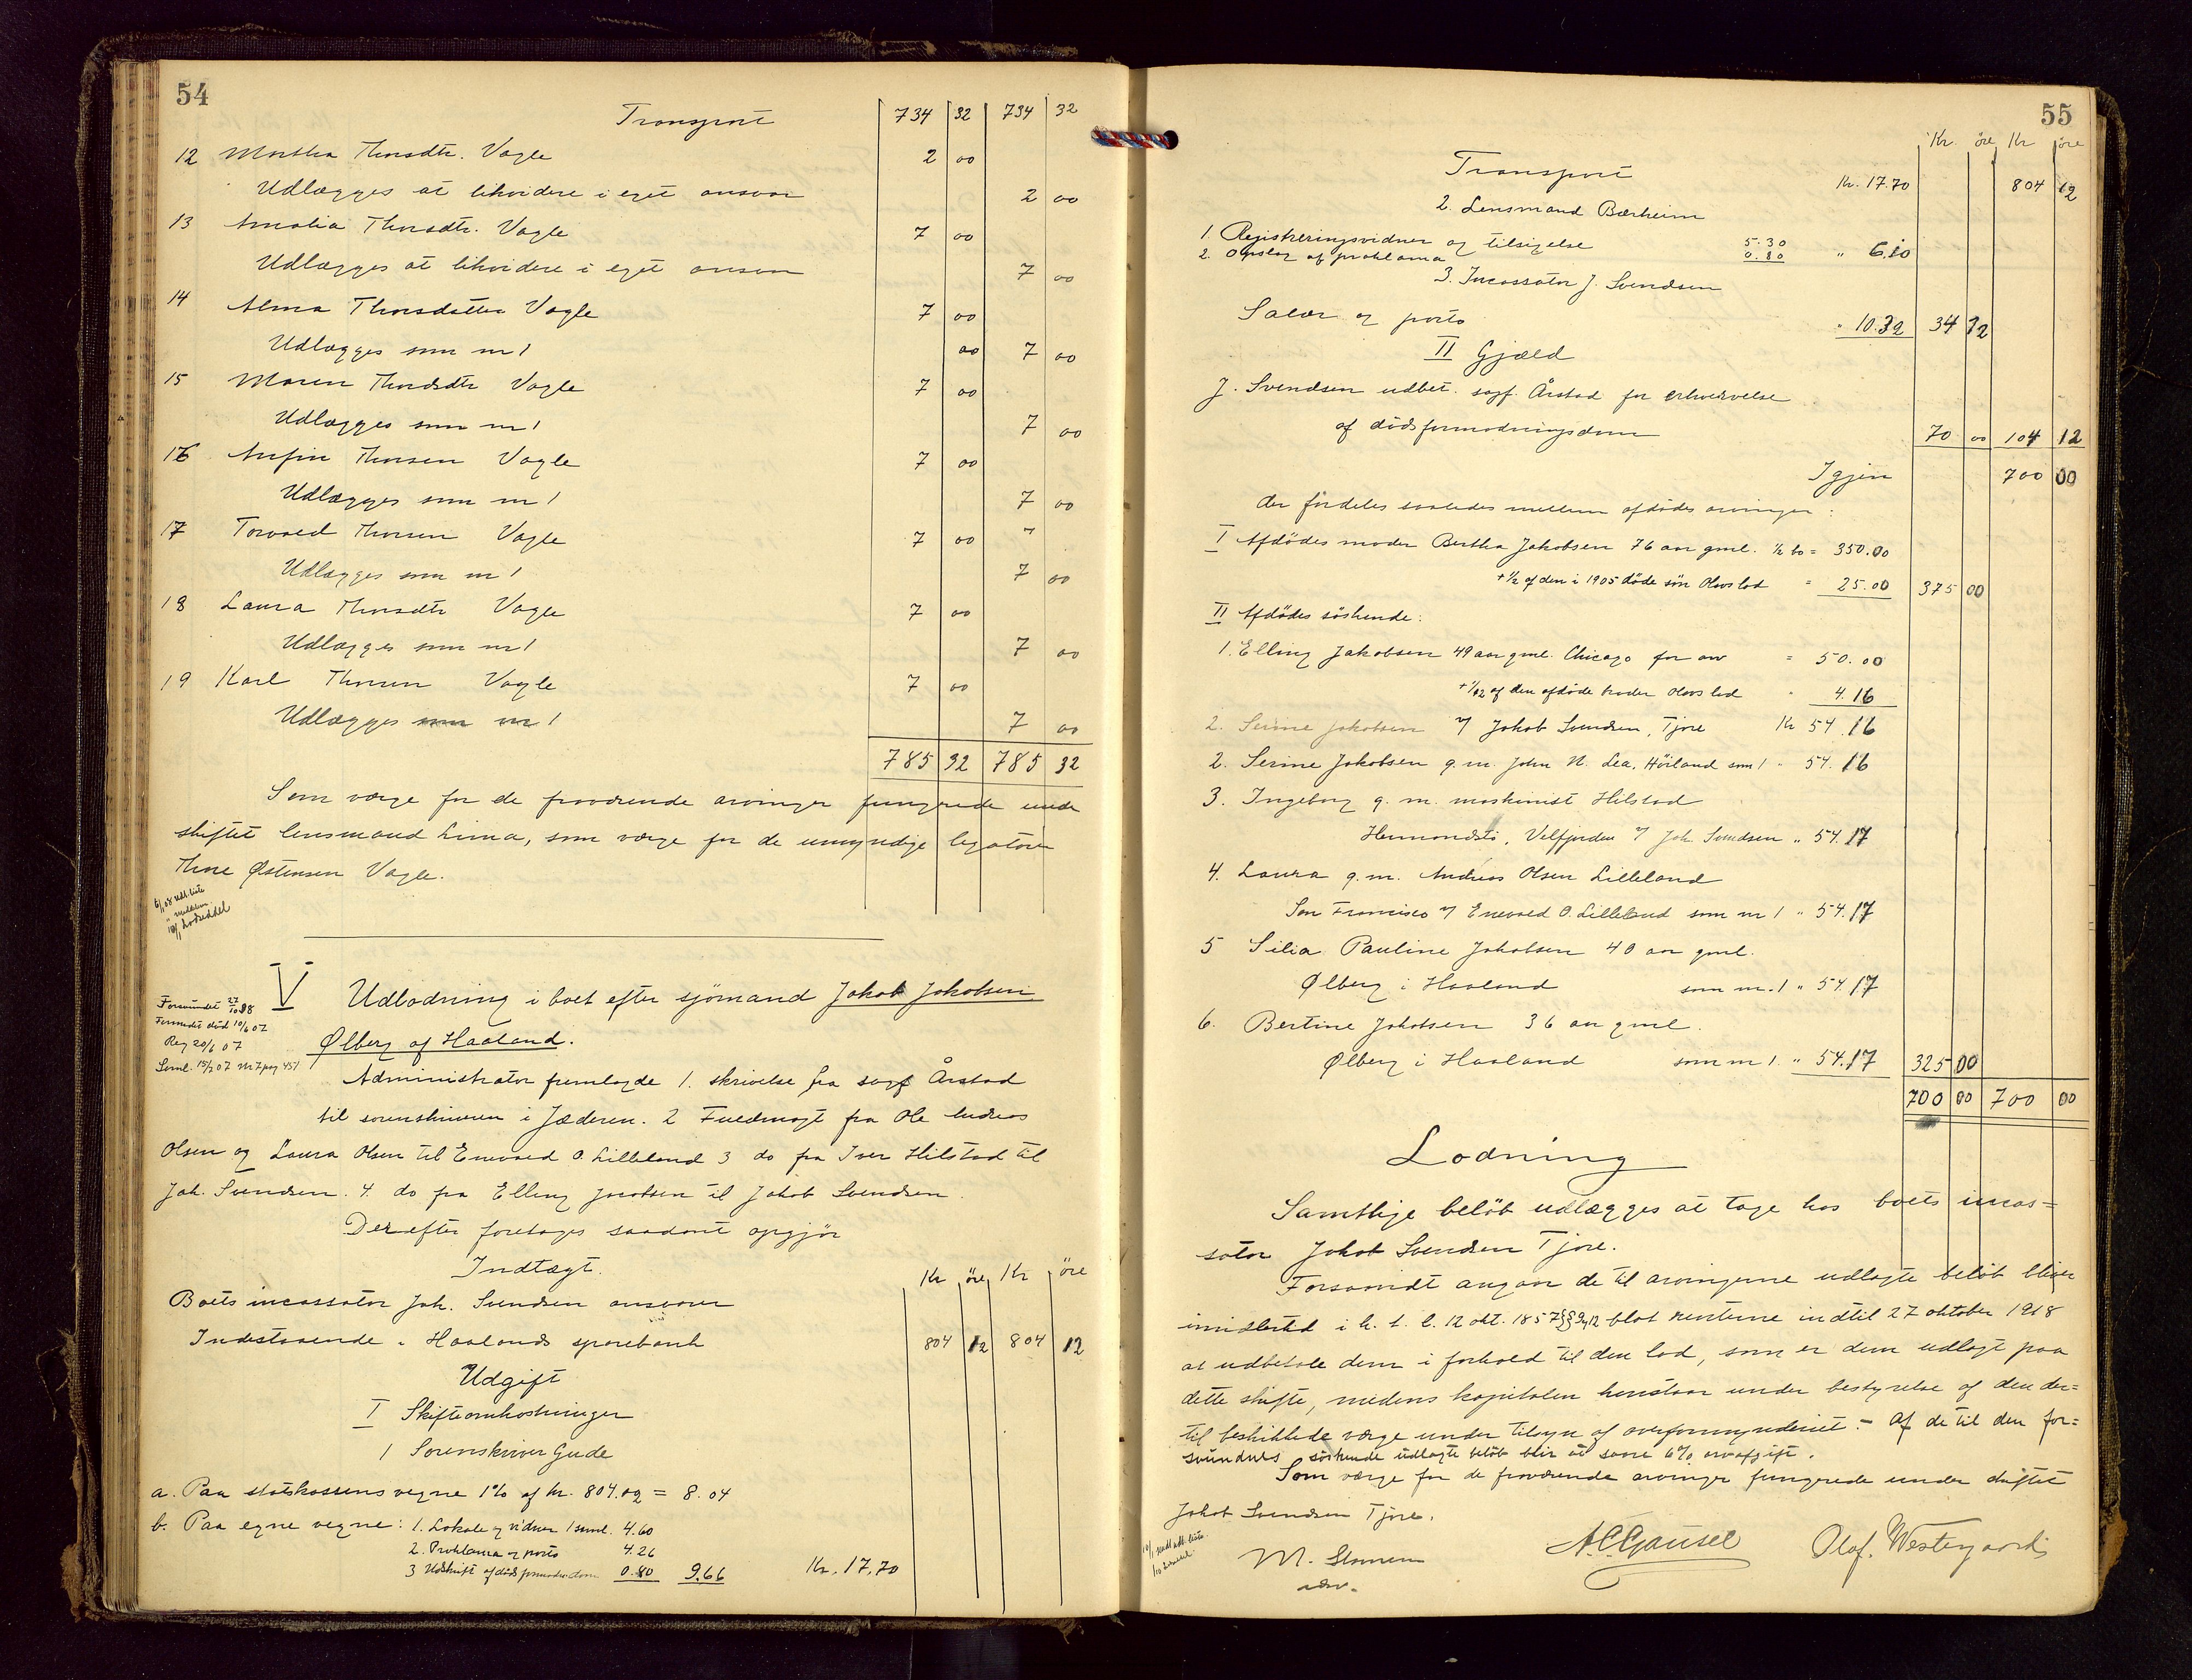 54
Transport 734 32 734 32
12 Martha Thorsdtr. Vagle 2 00
Udlægges at likvidere i eget ansvar 2 00
13 Amalia Thorsdtr. Vagle 7 00
Udlægges at likvidere i eget ansvar 7 00
14 Alma Thorsdatter Vagle 7 00
Udlægges som nr 1 00 7 00
15 Maren Thorsdtr Vagle 7 00
Udlægges som nr 1 7 00
16 Thorsen Vagle 7 00
Udlægges som nr 1 7 00
17 Torvald Thorsen Vagle 7 00
Udlægges som nr 1 7 00
18 Laura Thorsdtr Vagle 7 00
Udlægges som nr 1 7 00
19 Karl Thorsen Vagle 7 00
Udlægges som nr 1 7 00
785 32 785 32
Som værge for de fraværende arvinger fungerede under
skiftet lensmand Lima, som værge for de umyndige legatarer
Thore Østensen Vagle.
V Udlodning i boet efter sjömand Jakob Jakobsen
Forsvundet 27/10 98
Formodet död 10/6 07
Ølberg af Haaland.
Reg 20/6 07
Saml. 15/7 07 nr 7 pag 451
Administrator fremlagde 1. skrivelse fra sagf Årstad
til sorenskriveren i Jæderen. 2 Fuldmagt fra Ole Andreas
Olsen og Laura Olsen til Enevald O. Lilleland 3 do fra Iver Hilstad til
Jak. Svendsen. 4. do fra Elling Jacobsen til Jakob Svendsen.
Derefter foretages saadant opgjör
Indtægt. Kr öre Kr öre
Boets incassator Jak. Svendsen ansvarer
Indestaaende i Haalands sparebank 804 12 804 12
Udgift
I Skifteomkostninger
1 Sorenskriver Gude
a. Paa statskassens vegne 1% af kr. 804.02 = 8.04
b. Paa egne vegne: 1. Lokale og vidner 1 saml. 4.60
2. Proklama og porto 4.26
3 Udskrift af dödsformodn.dom 0.80 9.66 Kr. 17.70
55
Kr. öre Kr öre
Transport Kr. 17.70 804 12
2. Lensmand Bærheim
1. Registreringsvidner og tilsigelse 5.30
2. Opslag af proklama 0.80 " 6.10
3. Incassator J. Svendsen
Salær og porto " 10.32 34 12
II Gjæld
J. Svendsen udbet. sagf. Årstad for erhvervelse
af dödsformodningsdom 70 00 104 12
Igjen 700 00
der fordeles saaledes mellem afdödes arvinger:
I Afdödes moder Bertha Jakobsen 76 aar gml. 1/2 bo = 350.00
+ 1/2 af den i 1905 döde sön Olavs lod = 25.00 375 00
II Afdödes söskende:
1. Elling Jakobsen 49 aar gml. Chicago for arv = 50.00
+ 1/12 af den afdöde broder Olavs lod " 4.16
2. Serine Jakobsen v/ Jakob Svendsen, Tjore Kr 54.16
2. Serine Jakobsen g. m. John N. Lea, Hörland som 1 " 54.16
3. Ingeborg g. m. maskinist Hilstad
Velfjorden v/ Jak. Svendsen " 54.17
4. Laura g. m. Andreas Olsen Lilleland
San Francisco v/ Enevald O. Lilleland som nr 1 " 54.17
5 Silia Pauline Jakobsen 40 aar gml.
Ølberg i Haaland som nr. 1 " 54.17
6. Bertine Jakobsen 36 aar gml.
Ølberg i Haaland som nr 1. " 54.17 325 00
700 00 700 00
Lodning
Samtlige belöb udlægges at tage hos boets incas=
sator Jakob Svendsen Tjore.
Forsaavidt angaar de til arvingerne udlagte belöb bliver
imidlertid i h. t. l. 12 okt. 1857 §§ 9,12 blot renterne indtil 27 oktober 1918
at udbetale dem i forhold til den lod, som er dem udlagt paa
dette skifte, medens kapitalen henstaar under bestyrelse af den der=
til beskikkede værge under tilsyn af overformynderiet. - Af de til den for=
svundnes söskende udlagte belöb blir at svare 6% arvafgift.
Som værge for de fraværende arvinger fungerede under skiftet
Jakob Svendsen Tjore.
A C Gausel Olaf. Westergaard